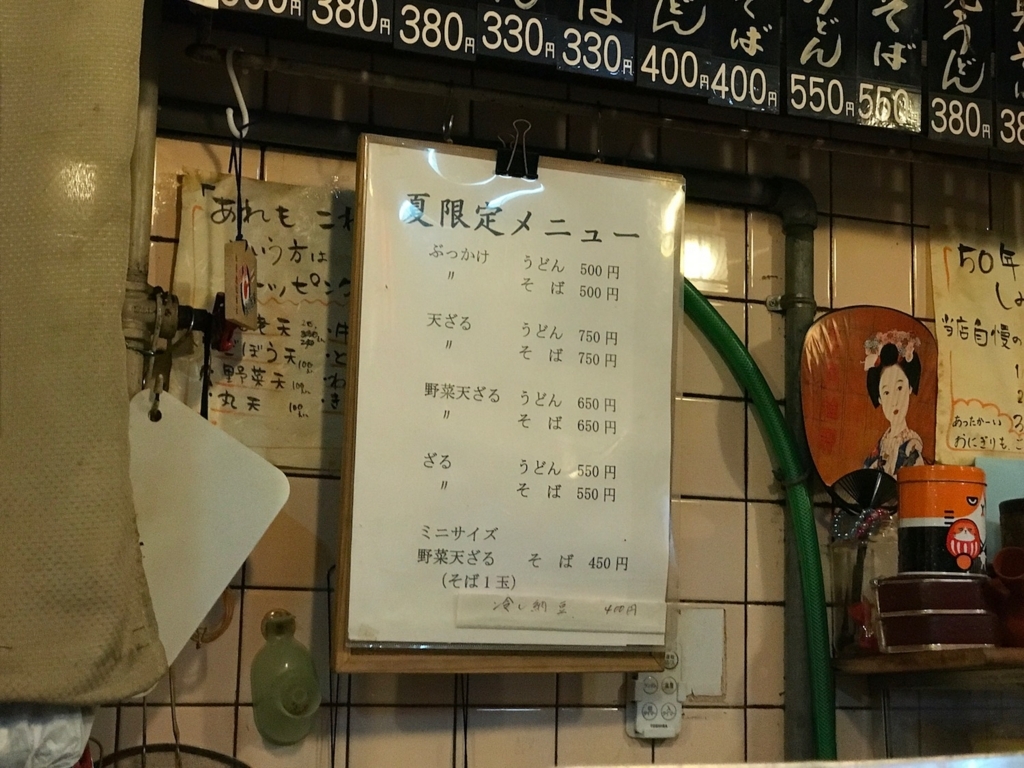 380円
380円
330円
ば
330円
どん
400円
そば
400円
うどん
550円
そば
550円
うどん
380円
夏限定メニュー
ぶっかけ うどん 500円
〃 そば 500円
天ざる うどん 750円
〃 そば 750円
野菜天ざる うどん 650円
〃 そば 650円
ざる うどん 550円
〃 そば 550円
ミニサイズ
野菜天ざる そば 450円
(そば1玉)
冷し納豆 400円
あれも これ
いう方は
ッピング
ごぼう天
野菜天
丸天
50年
当店自慢の
あったかーい
おにぎりも
TOSHIBA